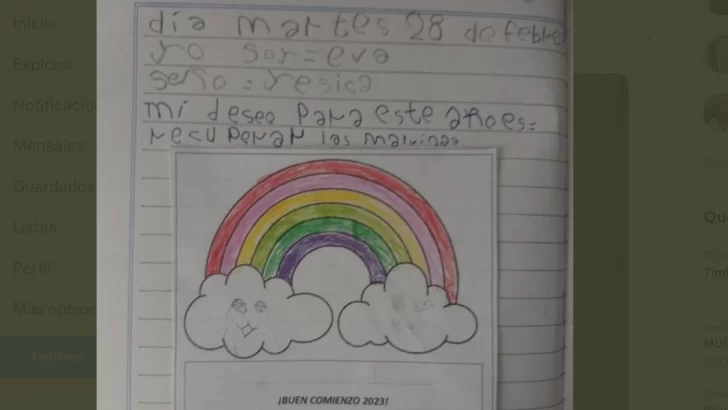 día martes 28 de febre
yo soy = eva
seño = yesica
mi deseo para este año es =
recuperar las malvinas
¡BUEN COMIENZO 2023!
Inicio
Explorar
Notificacio
Mensajes
Guardados
Listas
Perfil
Más opcion
Twittear
Qu